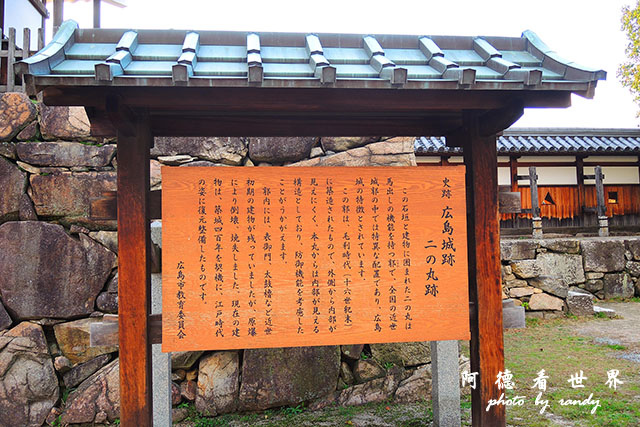 史跡 広島城跡
二の丸跡
この石垣と建物に囲まれた二の丸は
馬出しの機能を持つ郭で、全国の近世
城郭の中では特異な配置であり、広島
城の特徴とされています。
この郭は、毛利時代（十六世紀末）
に築造されたもので、外側から内部が
見えにくく、本丸からは内部が見える
構造としており、防御機能を考慮した
ことがうかがえます。
郭内には、表御門、太鼓櫓など近世
初期の建物が残っていましたが、原爆
により倒壊、焼失しました。現在の建
物は、築城四百年を契機に、江戸時代
の姿に復元整備したものです。
広島市教育委員会
阿德看世界
photo by randy